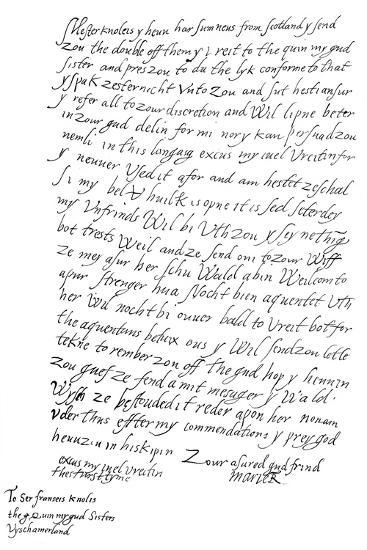 Mester knoleis y heuu har sum neus from scotland y send
zou the double off them y vreit to the quin my gud
sister and pres zou to du the lyk conforme to that
y spak zesternicht vnto zou and sut hesti ansur
y refer all to zour discretion and wil lipne beter
in zour gud delin for mi nor y kan persuad zou
nemli in this langasg excus my iuel vreitin for
y neuuer vsed it afor and am hestet ze schal
si my bel huilk is opne it is sed seterday
my vnfrinds wil bi vth zou y sey nething
bot trests weil and ze send oni to zour wiff
ze mey asur her schu wald a bin weilcom to
apur strenger hua nocht bien aquentet vth
her wil nocht bi ouuer bald to vreit bot for
the aquentans betuix ous y wil send zou lette
tekne to rember zou off the gud hop y heuu in
zou guef ze fend a mit mesager y wald
wysh ze bestouded it reder apon her non any
vder thus efter my commendations y prey god
heuu zou in his kipin
Zour asured gud frind
Marie R
excus my iuel vreitin
thes furst tyme
To Ser fransers knolis
the quin my gud sisters
vyschamerland